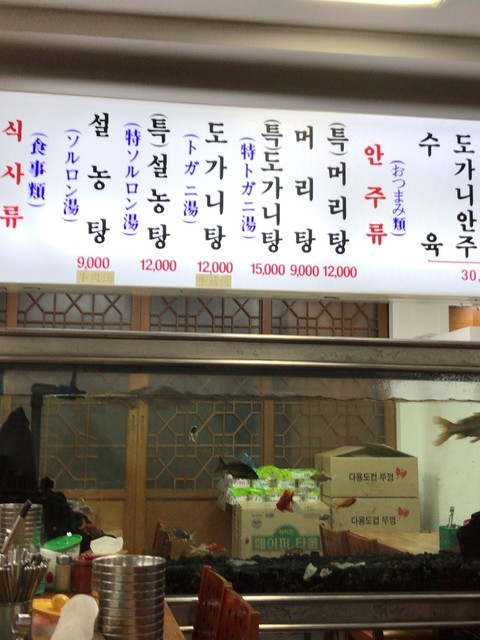 식사류
(食事類)
설농탕
(ソルロン湯)
9,000
(특)설농탕
(特ソルロン湯)
12,000
도가니탕
(トガニ湯)
12,000
(특)도가니탕
(特トガニ湯)
15,000
머리탕
9,000
(특)머리탕
12,000
안주류
(おつまみ類)
수육
도가니안주
30,
다용도컵 뚜껑
다용도컵 뚜껑
페이퍼 타올